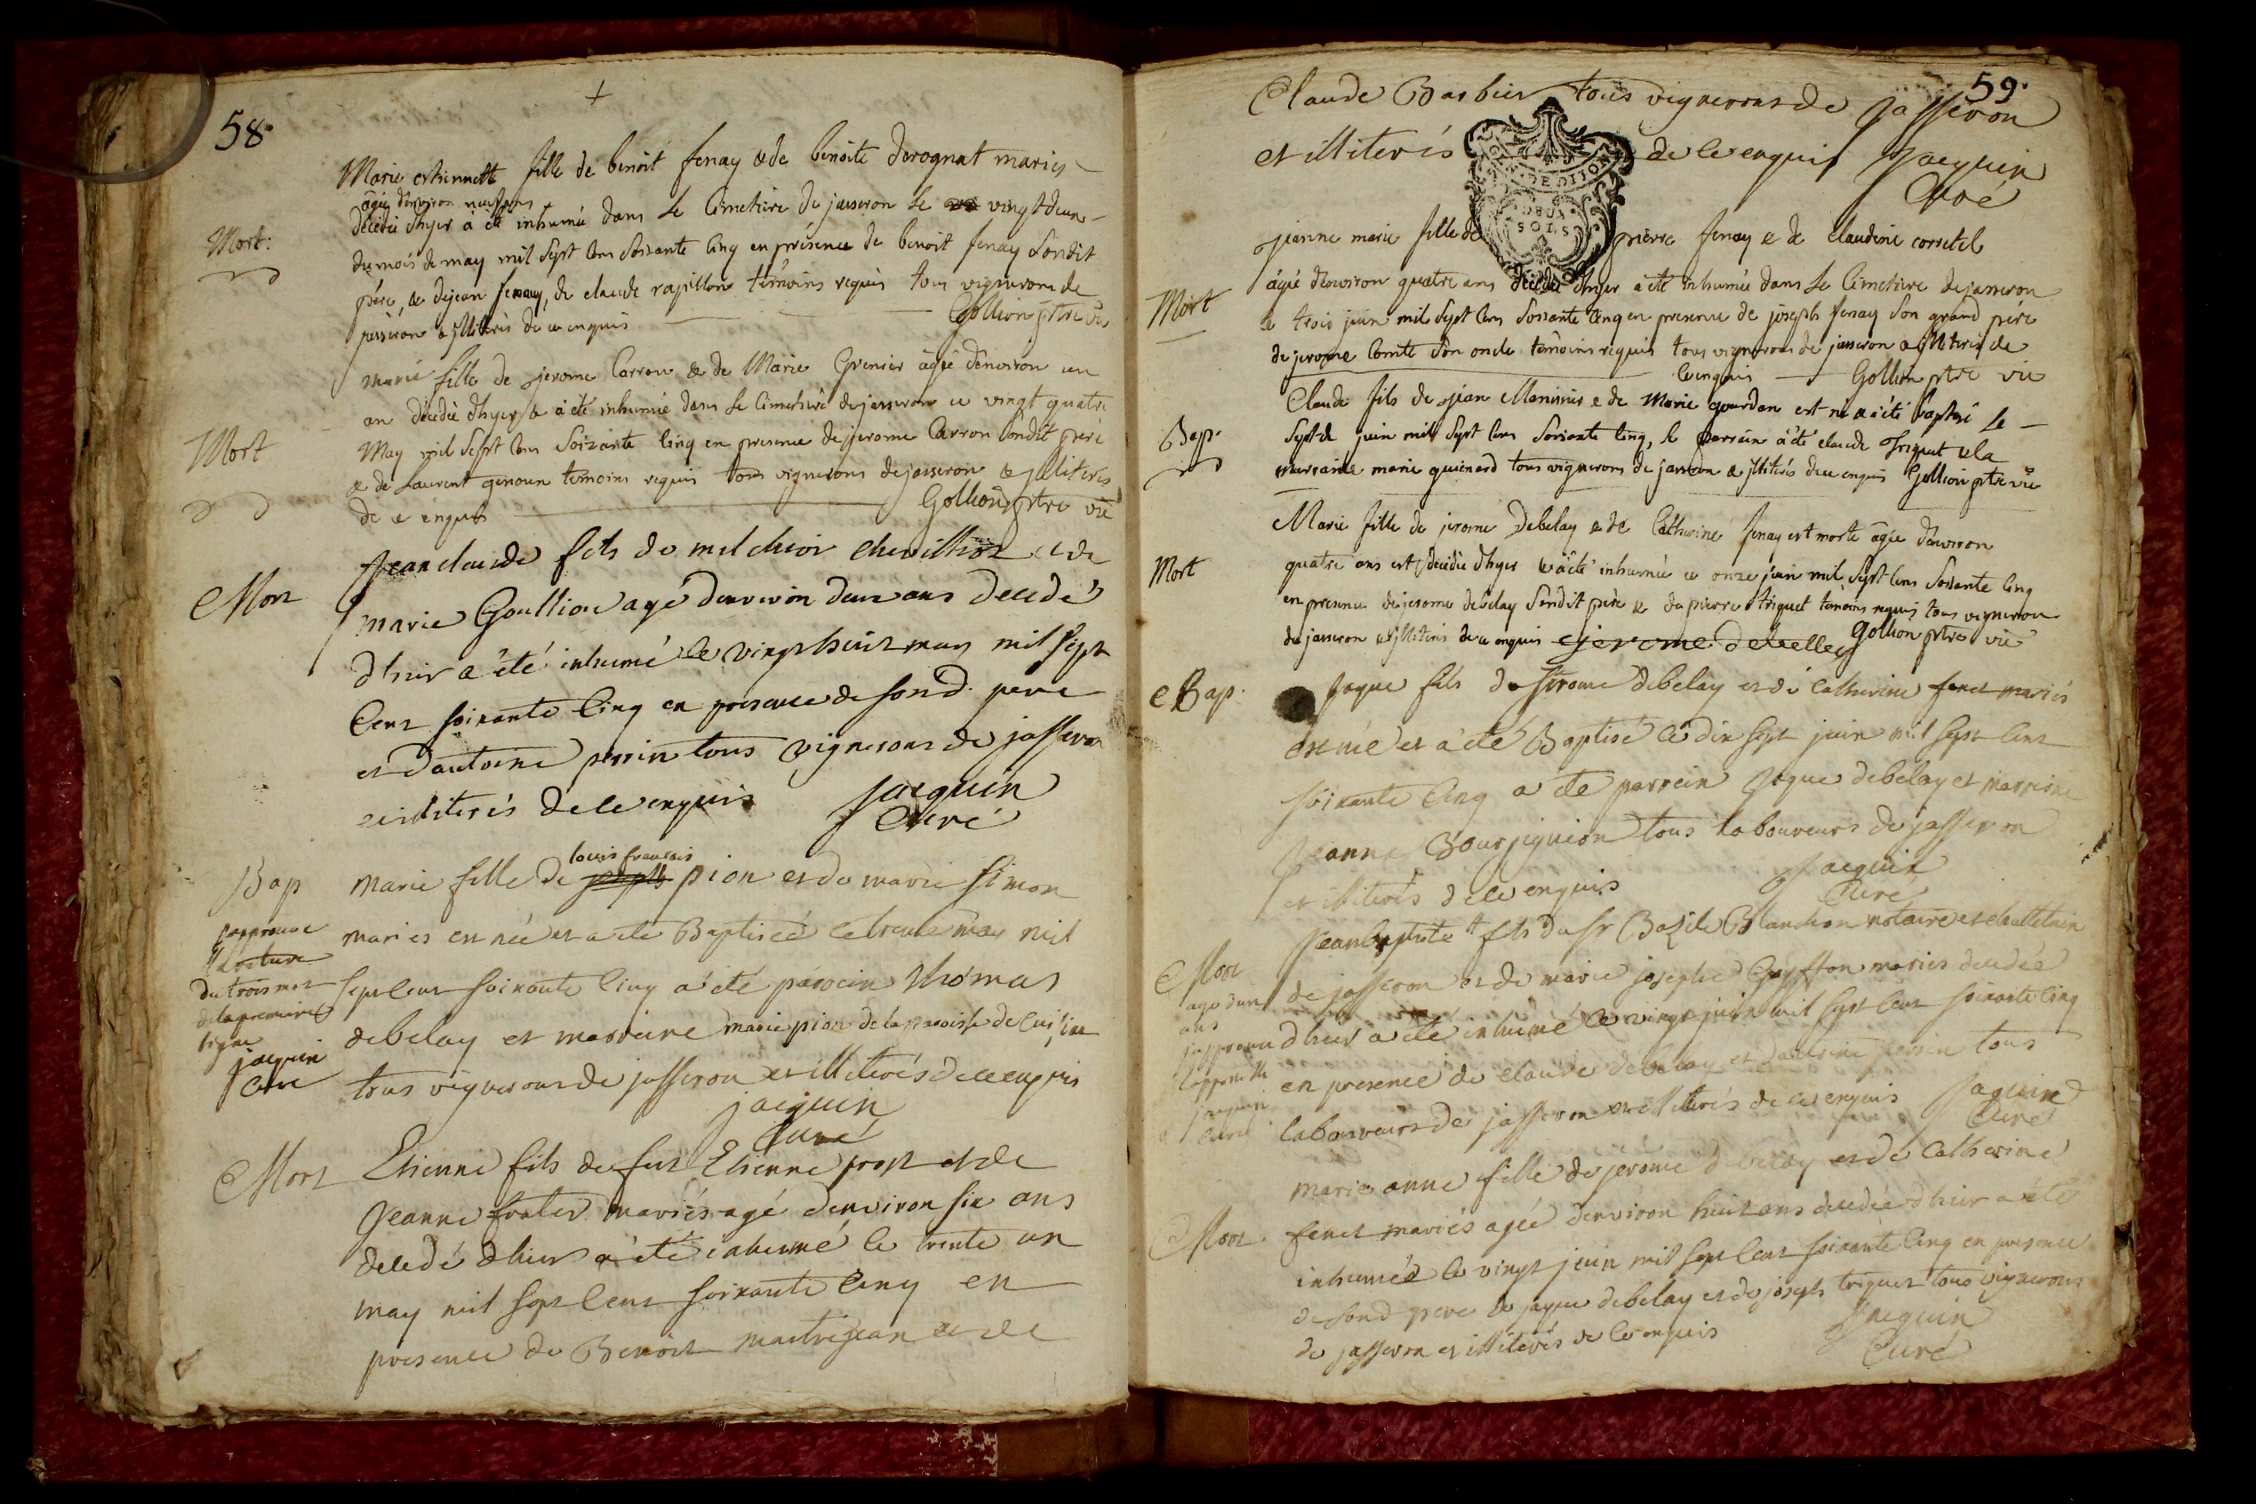 58.
Marie estiennette fille de benoit fenay & de benoite derognat mariés
agée d'environ neuf ans
Mort:
décédée d'hyer a été inhumée dans le Cimetiere de jasseron le vingt deux
du mois de may mil sept cens soixante cinq en présence de benoit fenay sondit
père, & de jean fenay, de claude rapillon témoins requis tous vignerons de
jasseron & jlliterés de ce enquis Gollion ptre vic
marie fille de jerome Carron & de Marie Grenier agée d'environ un
an décédée d'hyer & a été inhumée dans le Cimetiere de jasseron ce vingt quatre
Mort
May mil sept cens soixante cinq en presence de jerome Carron sondit père
& de Laurent genoun temoins requis tous vignerons de jasseron & jlliterés
de ce enquis Gollion ptre vic
Mort
jean claude fils de melchior chevillion et de
marie Goullion agé denviron deux ans decedé
d'hier a été inhumé le vingt huit may mil sept
cent soixante cinq en presence de sond. pere
et d'antoine perrin tous vignerons de jasseron
et illiterés de ce enquis jacquin
Curé
louis francois
Bap
marie fille de joseph pion et de marie simon
mariés est née et a été Baptisée le trente may mil
sept cent soixante cinq a été parrein Thomas
debelay et marreine marie pion de la paroisse de Cuisia
tous vignerons de jasseron et illiterés de ce enquis
jacquin
Curé
japprouve
la rature
du trois mot
de la premiere
ligne
jacquin
Curé
Mort
Etienne fils de feu Etienne prost et de
Jeanne frater mariés agé denviron six ans
decedé d'hier a été inhumé le trente un
may mil sept cent soixante cinq en
presence de Benoit maitrejean et de
59.
Claude Barbier tous vignerons de jasseron
et illiterés de ce enquis Jacquin
Curé
GEN. DE DIJON
SOLS
Jeanne marie fille de pierre fenay & de claudine corretel
Mort
agée d'environ quatre ans décédée d'hyer a été inhumée dans le Cimetiere de jasseron
le trois juin mil sept cens soixante cinq en presence de joseph fenay son grand père
de jerome Comte son oncle temoins requis tous vignerons de jasseron & jlliterés de
ce enquis Gollion ptre vic
Bap.
Claude fils de jean Monnier & de Marie gourdan est né & a été baptisé le
sept de juin mil sept cens soixante cinq, le parrain a été claude triquet & la
marraine marie guinard tous vignerons de jasseron & jlliterés de ce enquis Gollion ptre vic
Mort
Marie fille de jerome Debelay & de Catherine fenay est morte agée d'environ
quatre ans est décédée d'hyer & a été inhumée ce onze juin mil sept cens soixante cinq
en presence de jerome debelay sondit père & de pierre triquet temoins requis tous vignerons
de jasseron & jlliterés de ce enquis jerome debelley Gollion ptre vic
Bap.
Jaque fils de jérome debelay et de Catherine fenet mariés
est né et a été Baptisé le dix sept juin mil sept cent
soixante cinq a été parrein Jaque debelay et marreine
Jeanne Bourjeguion tous laboureurs de jasseron
et illiterés de ce enquis Jacquin
Curé
Mort
Jean baptiste fils du sr Bazile Blanchon notaire et chattelain
de jasseron et de marie josephe Gayffon mariés decedé
d'hier a été inhumé le vingt juin mil sept cent soixante cinq
en presence de claude debelay et d'antoine perrin tous
laboureurs de jasseron et illiterés de ce enquis Jaquin
Curé
agé dun
ans
japprouve
lappostille
jacquin
Curé
Mort.
marie anne fille de jerome debelay et de Catherine
fenet mariés agée denviron huit ans decedée d'hier a été
inhumée le vingt juin mil sept cent soixante cinq en presence
de sond pere de jaque debelay et de joseph triquet tous vignerons
de jasseron et illiterés de ce enquis Jacquin
Curé